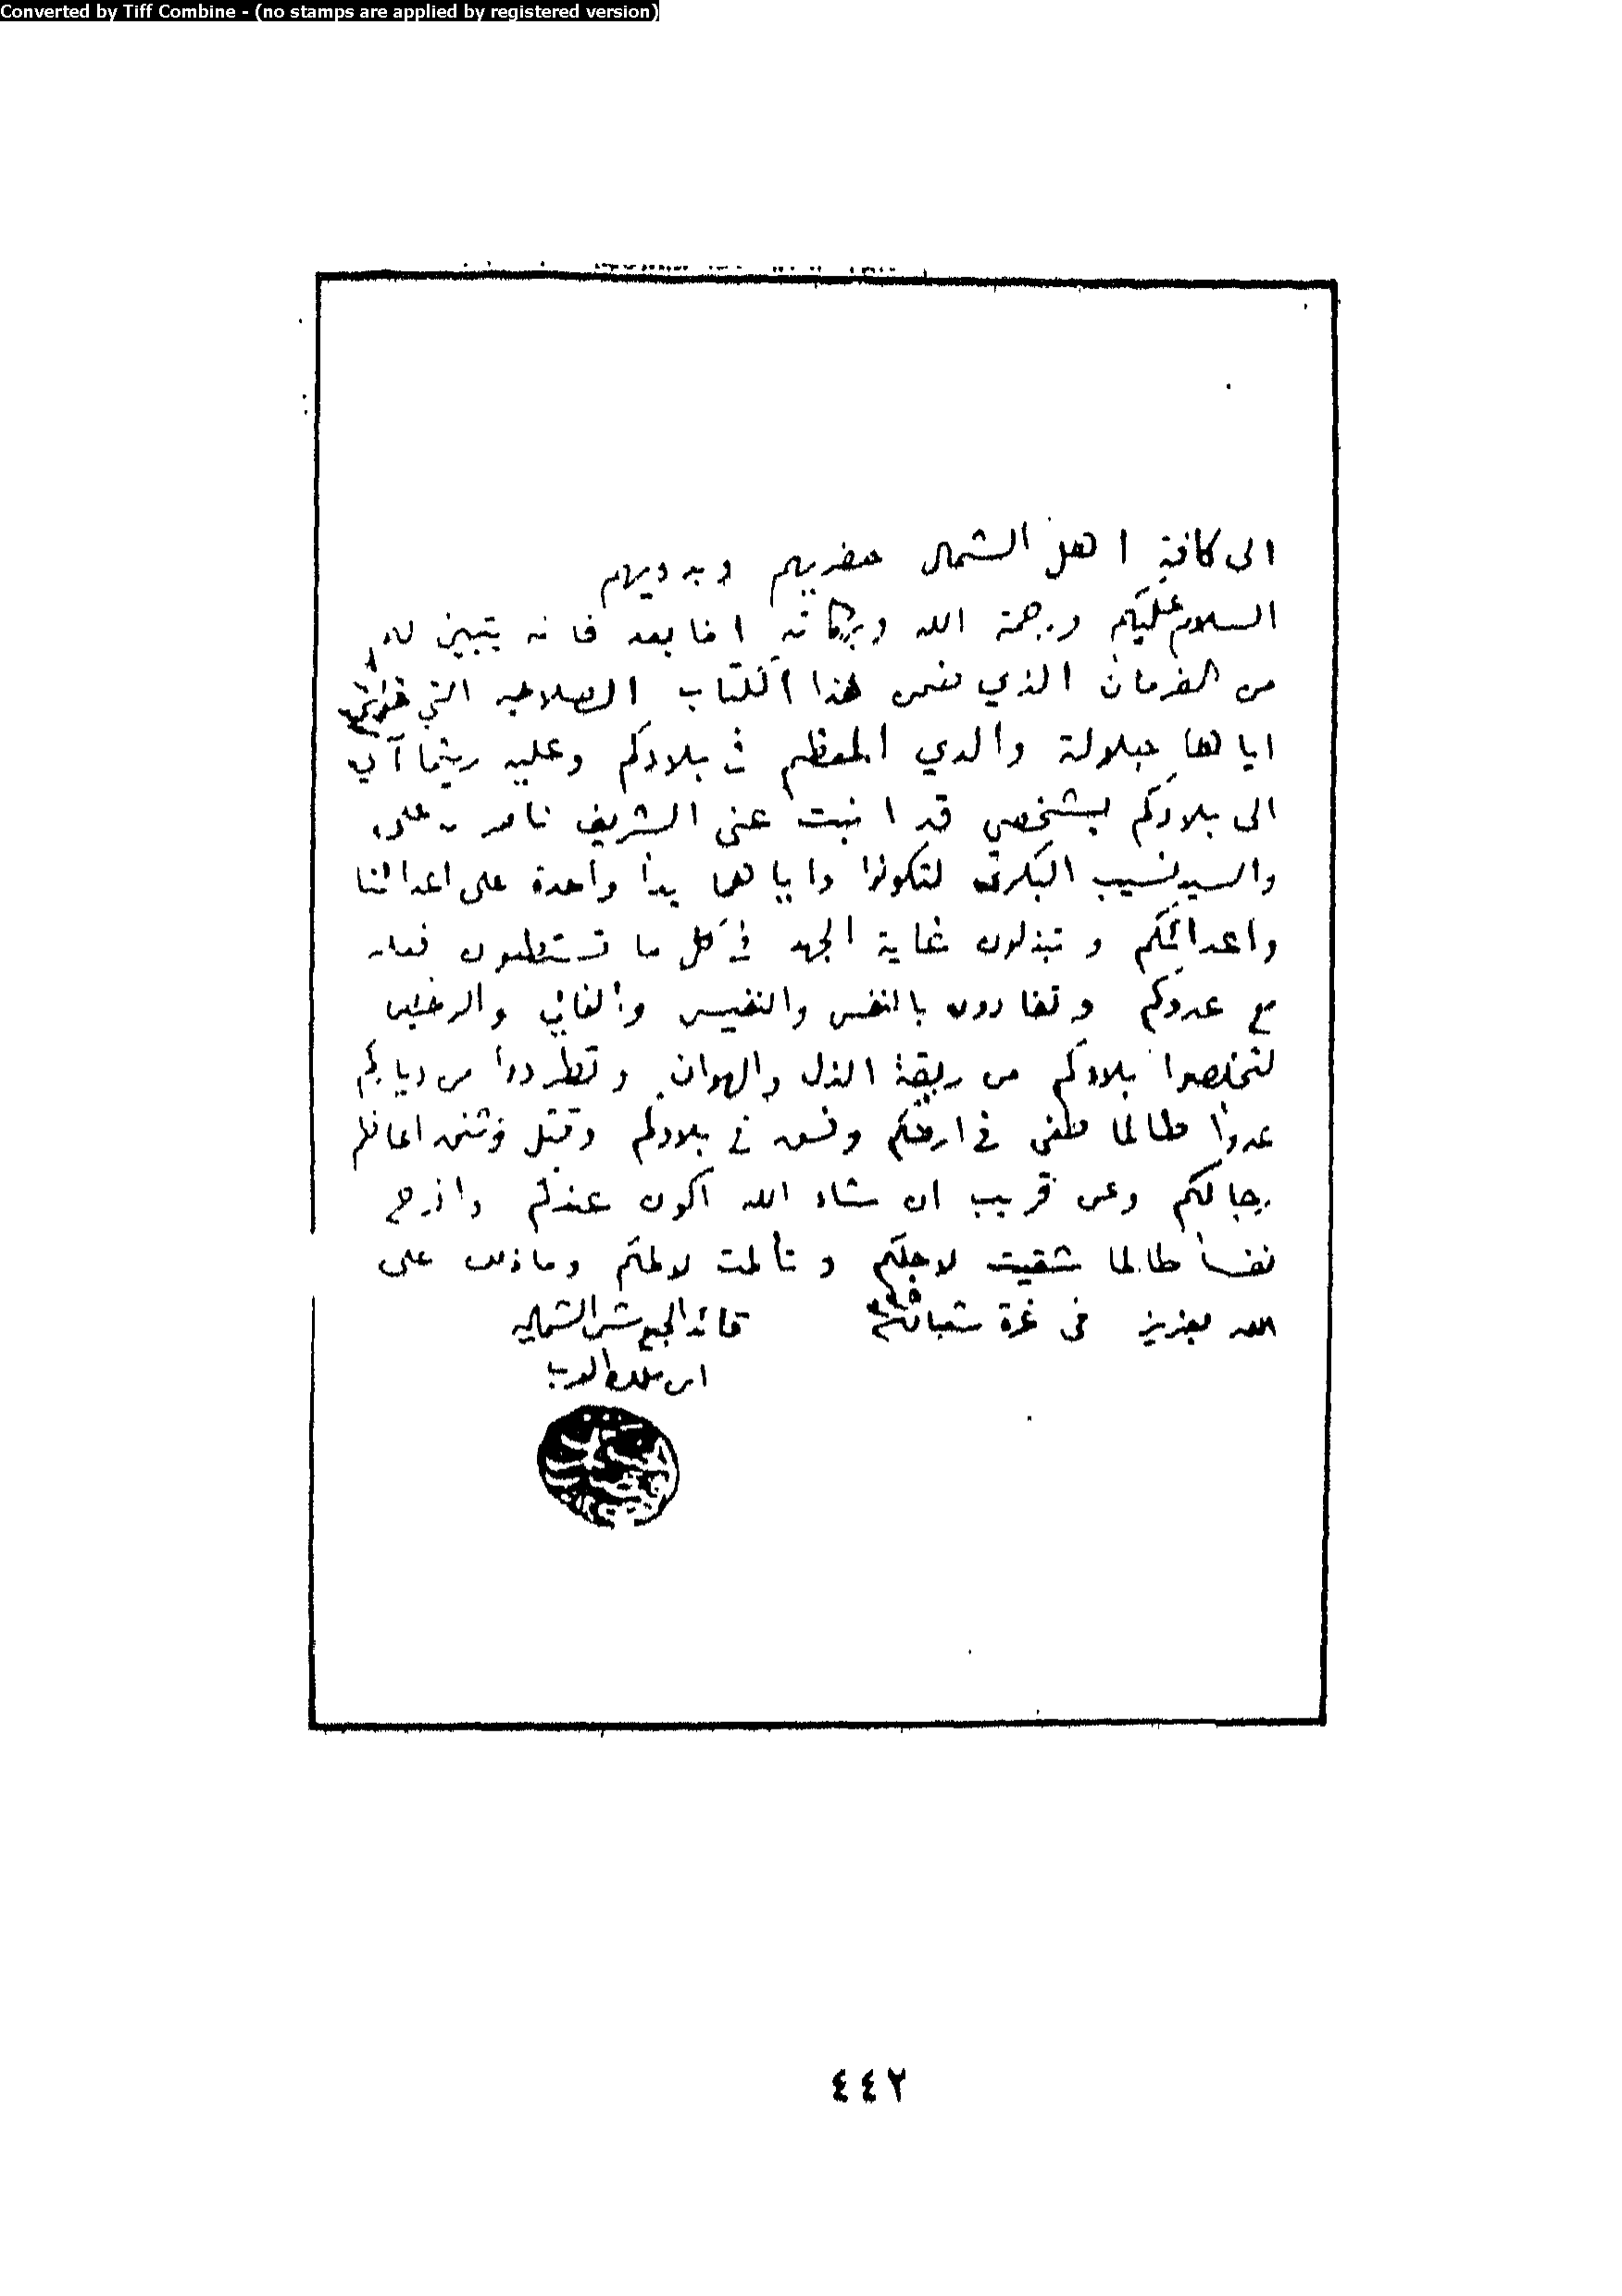 Converted by Tiff Combine - (no stamps are applied by registered version)
الى كافة اهل الشمال حضريهم وبدويهم
السلام عليكم ورحمة الله وبركاته اما بعد فانه يتبين لكم
من الفرمان الذي ضمن هذا الكتاب الصلاحيه التي خولني
اياها جلالة والدي المعظم في بلادكم وعليه ريثما آتي
الى بلادكم بشخصي قد انبت عني الشريف ناصر بن علي
والسيد نسيب البكري لتكونوا واياهما يداً واحدة على اعدائنا
واعدائكم وتبذلون غاية الجهد في كل ما تستطيعون فعله
مع عدوكم وتفادون بالنفس والنفيس والغالي والرخيص
لتخلصوا بلادكم من ربقة الذل والهوان وتطردوا من دياركم
عدواً طالما طغى في ارضكم وفسق في بلادكم وقتل وشنق اعاظم
رجالكم وعن قريب ان شاء الله اكون عندكم وافرح
نفساً طالما شقيت لاجلكم وتألمت لالمكم وما ذلك على
الله بعزيز في غرة شعبان ٣٣٥
قائد الجيوش الشماليه
ابن ملك العرب
٤٤٢